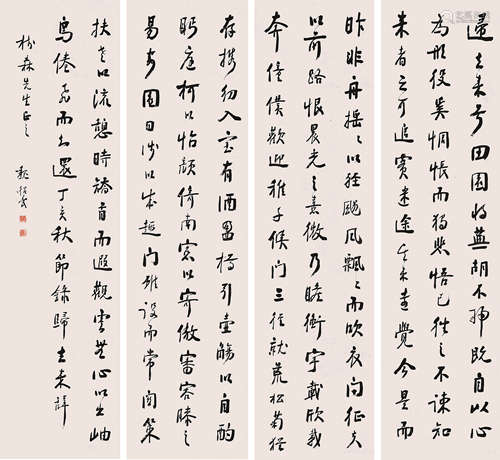 歸去來兮田園將蕪胡不歸既自以心
為形役奚惆悵而獨悲悟已往之不諫知
來者之可追實迷途其未遠覺今是而
昨非舟搖搖以輕颺風飄飄而吹衣问征夫
以前路恨晨光之熹微乃瞻衡宇載欣載
奔僮僕歡迎稚子候门三徑就荒松菊猶
存攜幼入室有酒盈樽引壺觴以自酌
眄庭柯以怡顏倚南窗以寄傲審容膝之
易安園日涉以成趣门雖設而常関策
扶老以流憩時矯首而遐觀雲無心以出岫
鳥倦飛而知還丁亥秋節錄歸去來辭
樹森先生正之